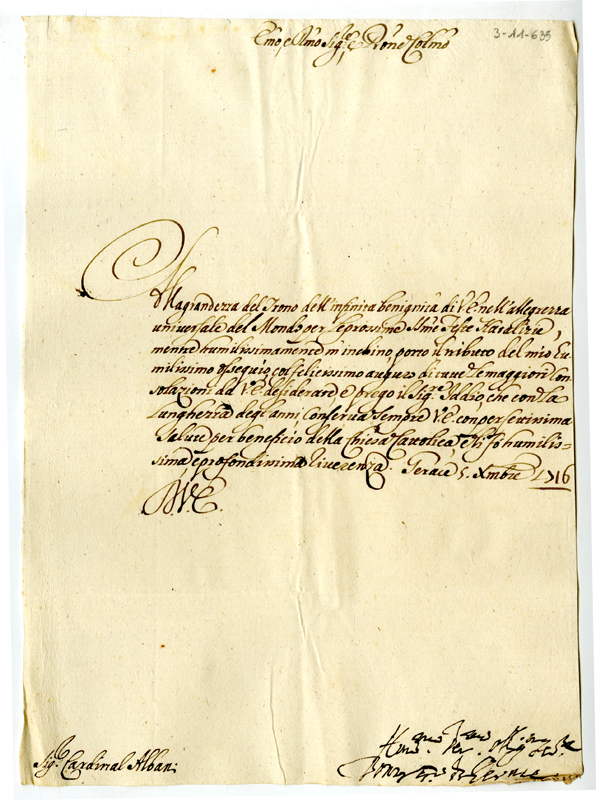 3-11-635
Emo, e Rmo Sig.re e Prone Colmo
Alla grandezza del Trono dell'infinita benignità di V.E. nell'allegrezza
universale del Mondo per le prossime SSme Feste Natalizie,
mentre humilissimamente m'inchino, porto il tributo del mio hu-
milissimo ossequio, col felicissimo augurio di tutte le maggiori con-
solazioni da V.E. desiderate, e prego il Sig.re Iddio, che con la
lunghezza degl'anni conserva sempre V.E. con perfettissima
salute per beneficio della Chiesa Cattolica, e li fò humilis-
sima e profondissima riverenza. Gerace 5. Xmbre 1716
D.V.E.
Sig.r Cardinal Albani
Hum.mo